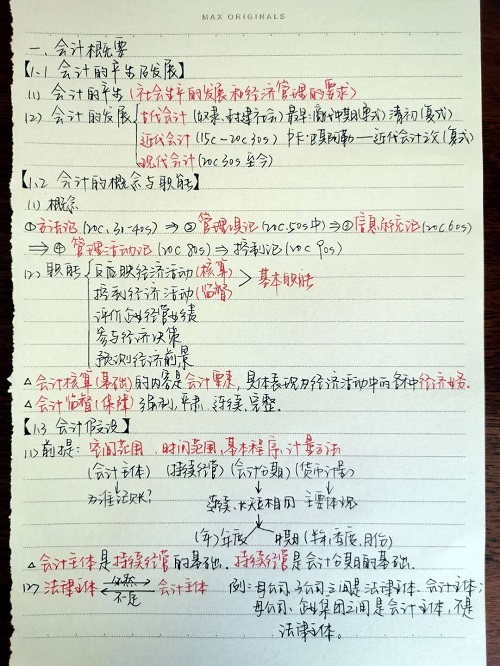 MAX ORIGINALS
一、会计概要
【1.1 会计的产生及发展】
(1) 会计的产生 (社会生产的发展和经济管理的要求)
(2) 会计的发展 古代会计 (奴隶、封建社会) 最早:商代中期(单式) 清初(复式)
近代会计 (15c-20c 30s) 卢卡·巴其阿勒—近代会计之父(复式)
现代会计 (20c 30s 至今)
【1.2 会计的概念与职能】
(1) 概念
①方法论(20c,31-40s) ⇒ ②管理工具论(20c.50s中) ⇒ ③信息系统论(20c60s)
⇒ ④ 管理活动论(20c 80s) ⇒ 控制论(20c 90s)
(2) 职能 反应映经济活动(核算)
控制经济活动(监督) > 基本职能
评价企业经营业绩
参与经济决策
预测经济前景
△会计核算(基础)的内容是会计要素,具体表现为经济活动中的各种经济业务.
△会计监督(保障) 强制,严肃、连续、完整.
【1.3 会计假设】
(1)前提: 空间范围、时间范围、基本程序、计量方法
(会计主体) (持续经营) (会计分期) (货币计量)
为谁记账? 连续、长短相同 主要体现
(年)年度 中期 (半年,季度,月份)
△会计主体是持续经营的基础、持续经营是会计分期的基础.
(2) 法律主体 必然 不是 会计主体 例:母公司、子公司之间是法律主体、会计主体;
母公司、企业集团之间是会计主体,不是
法律主体。